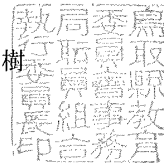 鳥取縣教育
委員會事務
局職員組合
執行委員長印
樹